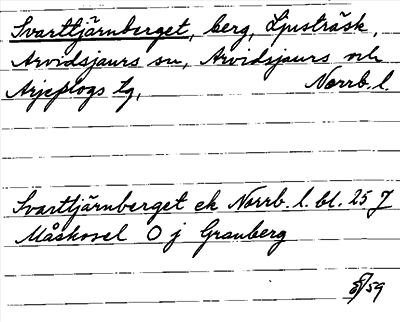 Svarttjärnberget, berg, Ljusträsk,
Arvidsjaurs sn, Arvidsjaurs och
Arjeplogs tg, Norrb. l.
Svarttjärnberget ek Norrb. l. bl. 25 J
Måskosel O j Granberg
59